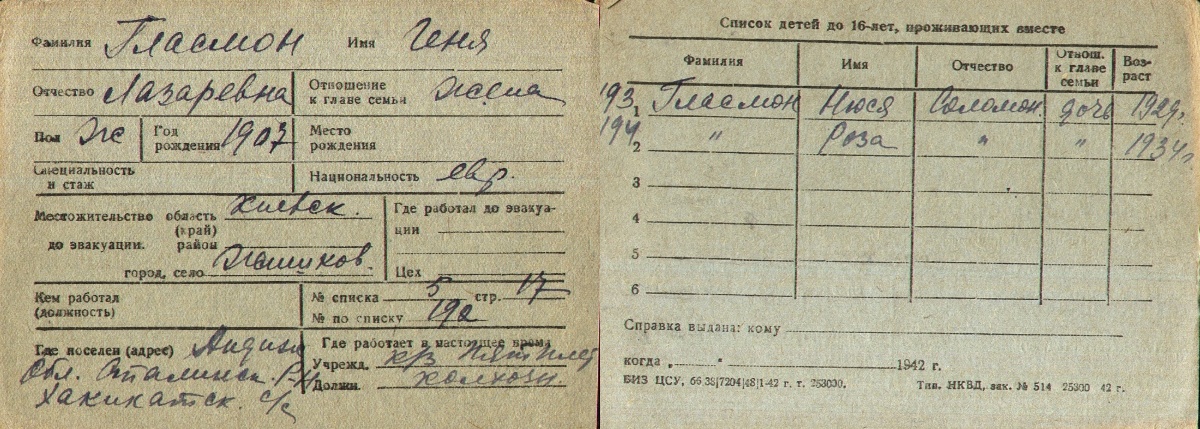 Фамилия Гласмон Имя Геня
Отчество Лазаревна Отношение к главе семьи жена
Пол ж Год рождения 1907 Место рождения
Специальность и стаж Национальность евр.
Местожительство до эвакуации: область (край) Киевск.
район
город, село Жашков.
Где работал до эвакуации
Цех
Кем работал (должность)
№ списка 5 стр. 17
№ по списку 192
Где поселен (адрес) Андиж.
Обл. Сталинск. р-н
Хакикатск. с/с
Где работает в настоящее время
Учрежд. к/з
Должн. колхозн
Список детей до 16-лет, проживающих вместе
Фамилия Имя Отчество Отнош. к главе семьи Возраст
193 1 Гласмон Нюся Соломон. дочь 1929г.
194 2 " Роза " " 1934г
3
4
5
6
Справка выдана: кому
когда " 1942 г.
БИЗ ЦСУ, 66 38|7204|48|1-42 г. т. 253000. Тип. НКВД, зак. № 514 25300 42 г.